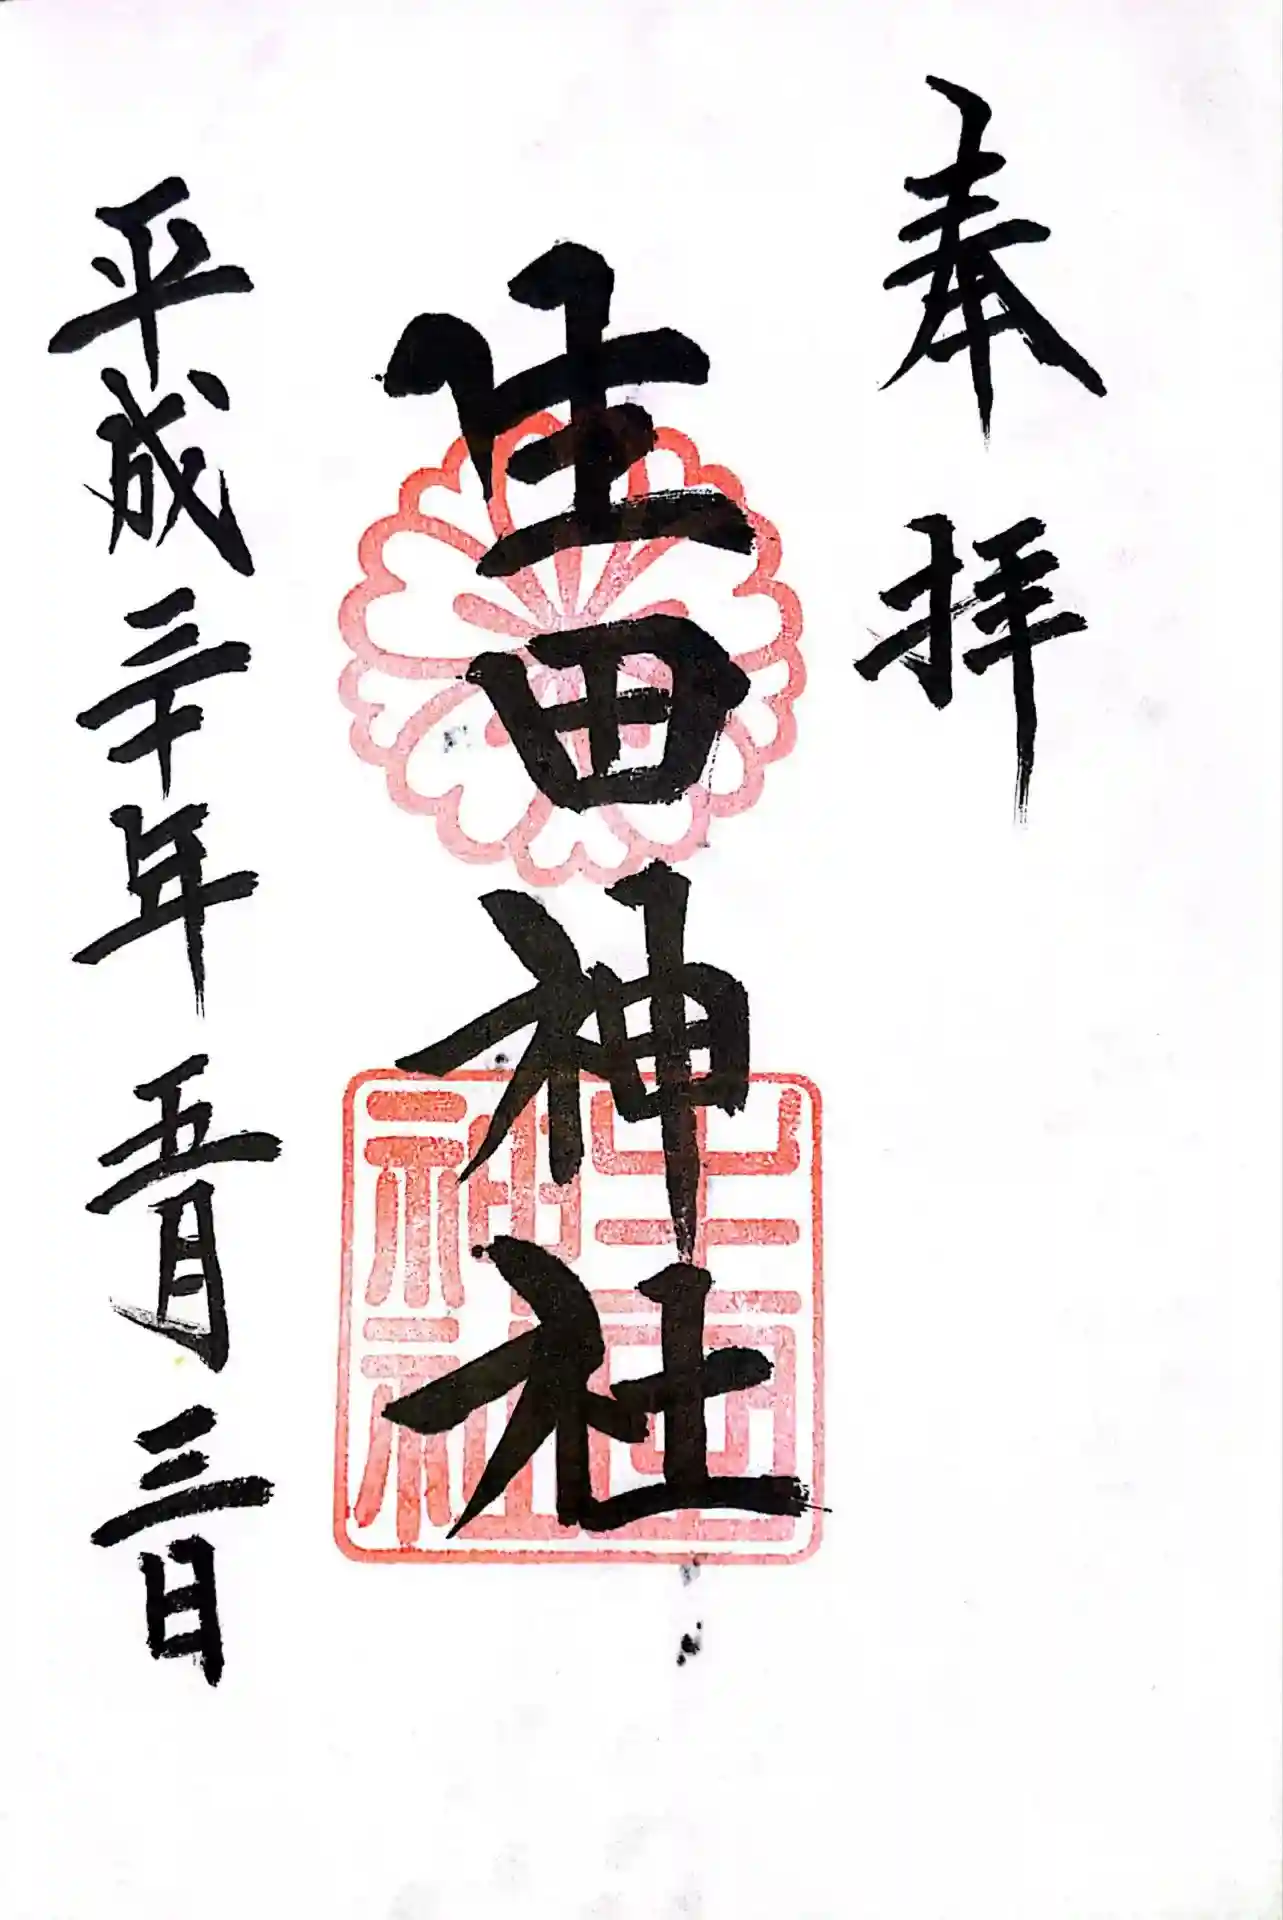 奉拝
生田神社
生田神社
平成三十年五月三日